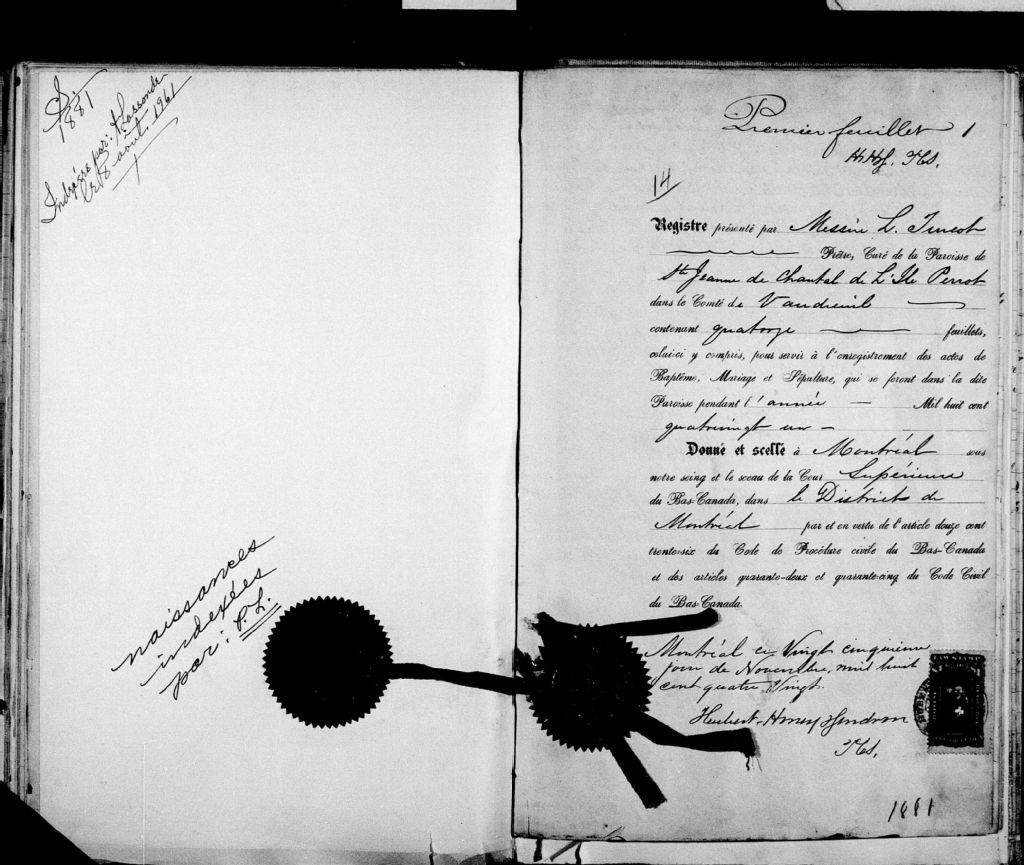 S.
1881
Indexée par: A. Lassonde
ce 8 août 1961
naissances
indexées
par: P. L.
Premier feuillet 1
HHJ. Pts.
14
Registre présenté par Messire L. Turcot
Prêtre, Curé de la Paroisse de
Ste Jeanne de Chantal de L'Ile Perrot
dans le Comté de Vaudreuil
contenant quatorze feuillets,
celui-ci y compris, pour servir à l'enregistrement des actes de
Baptême, Mariage et Sépulture, qui se feront dans la dite
Paroisse pendant l'année — Mil huit cent
quatrevingt un —
Donné et scellé à Montréal sous
notre seing et le sceau de la Cour Supérieure
du Bas-Canada, dans le District de
Montréal par et en vertu de l'article douze cent
trente-six du Code de Procédure civile du Bas-Canada
et des articles quarante-deux et quarante-cinq du Code Civil
du Bas-Canada.
Montréal ce Vingt cinquieme
jour de Novembre, mil huit
cent quatre Vingt.
Hubert-Honey
1881